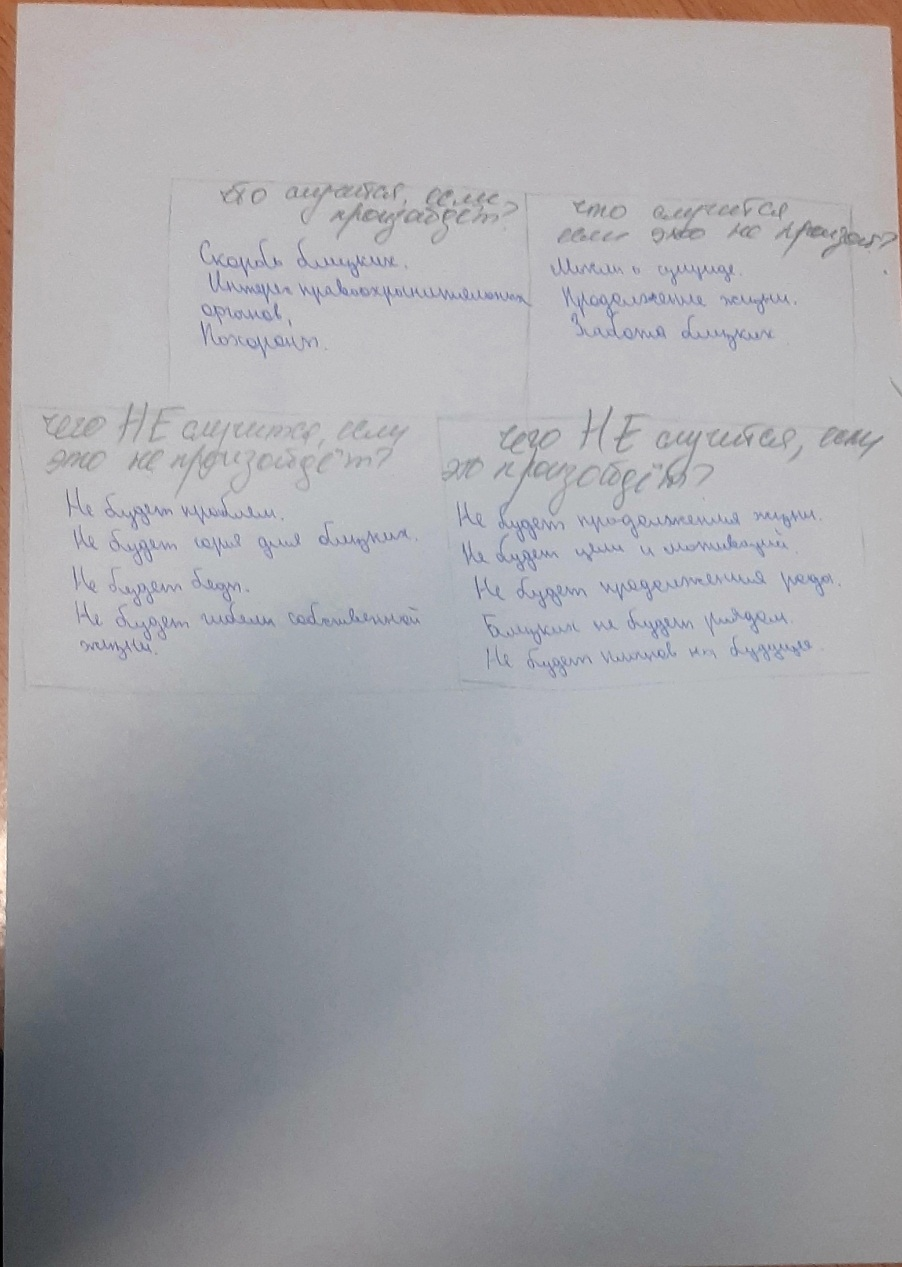 что случится, если
произайдёт?
Скорбь близких.
Интерес правоохранительных
органов,
Похороны.
что случится
если это не произой?
Мысли о суициде.
Продолжение жизни.
Забота близких
чего НЕ случится, если
это не произойдёт?
Не будет проблем.
Не будет горя для близких.
Не будет беды.
Не будет гибели собственной
жизни.
чего НЕ случится, если
это произойдёт?
Не будет продолжения жизни.
Не будет цели и мотиваций.
Не будет продолжения рода.
Близких не будет рядом.
Не будет планов на будущее